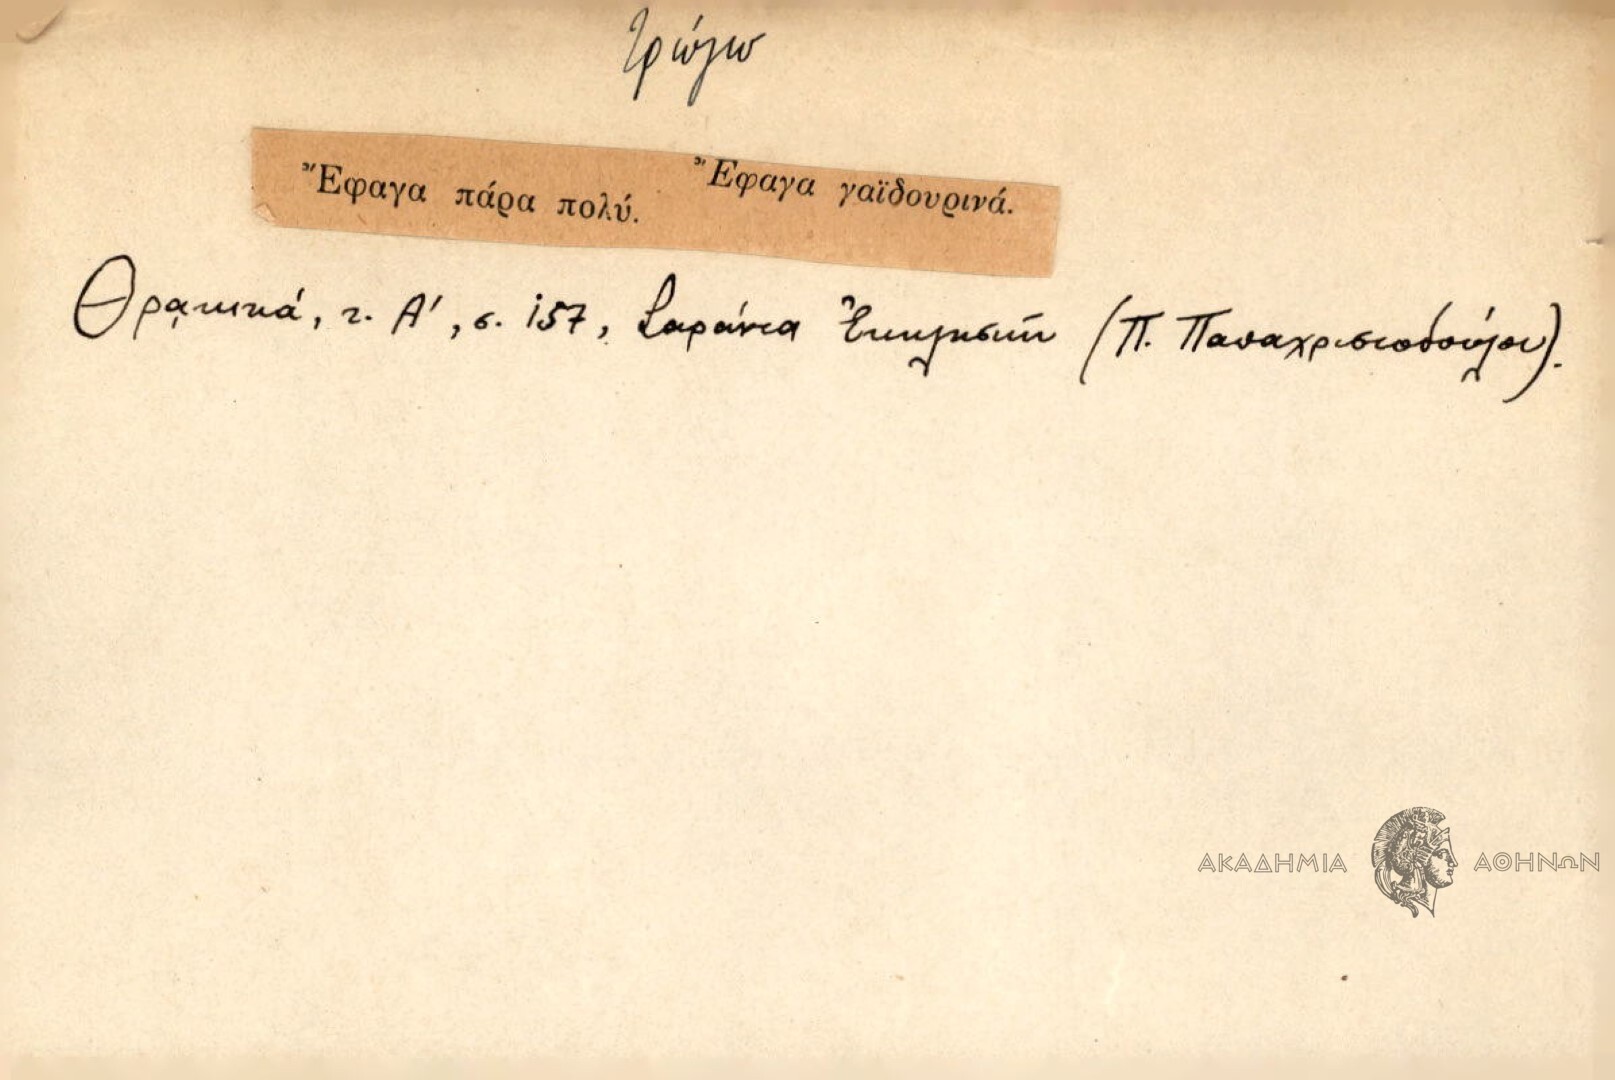 τρώγω
Ἔφαγα πάρα πολύ. Ἔφαγα γαϊδουρινά.
Θρακικά, τ. Α', σ. 157, Σαράντα Ἐκκλησιῶν (Π. Παπαχριστοδούλου).
ΑΚΑΔΗΜΙΑ ΑΘΗΝΩΝ